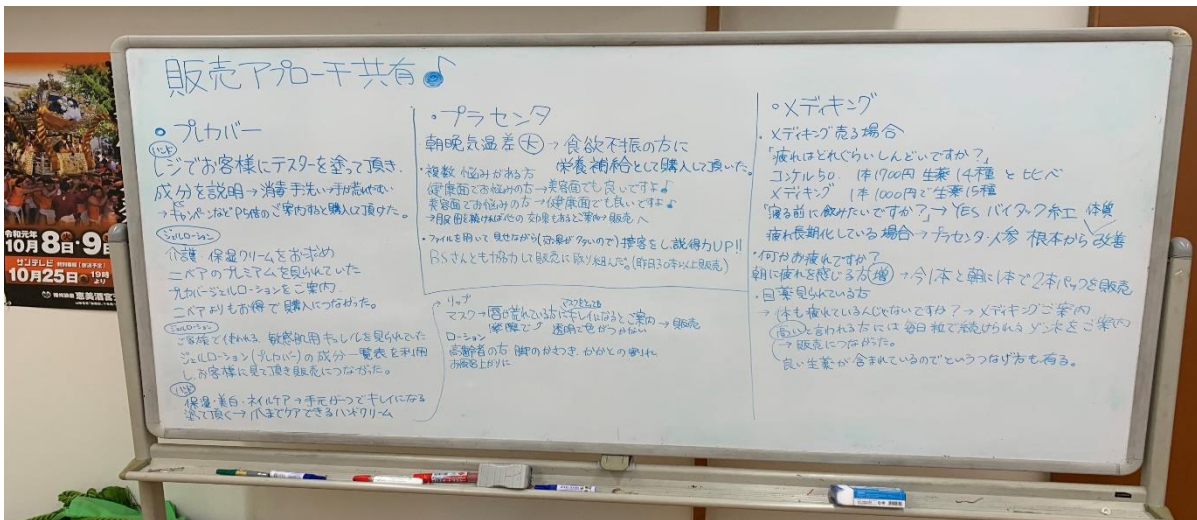 販売アプローチ共有♪
・プレカバー
ハンド
レジでお客様にテスターを塗って頂き、
成分を説明→消毒手洗い→手が荒れやすい
→キャンペーンなど P5倍のご案内すると購入して頂けた。
ジェルローション
介護・保湿クリームをお求め
ニベアのプレミアムを見られていた
プレカバージェルローションをご案内
ニベアよりもお得で購入につながった。
ジェルローション
ご家族で使われる 敏感肌用キュレルを見られていた
ジェルローション(プレカバー)の成分一覧表を利用
し、お客様に見て頂き販売につながった。
ハンド
保湿・美白・ネイルケア→手元が一つでキレイになる
塗って頂く→爪までケアできるハンドクリーム
・プラセンタ
朝晩気温差大→食欲不振の方に
栄養補給として購入して頂いた。
・複数悩みがある方
健康面でお悩みの方→美容面でも良いですよ♪
美容面でお悩みの方→健康面でも良いですよ♪
→服用を続ければ の効果もあるとご案内→販売へ
・ファイルを用いて見せながら(効果が多いので)接客をし説得力UP!!
BSさんとも協力して販売に取り組んだ。(昨日30本以上販売)
・リップ
マスク→唇が荒れている方にキレイになるとご案内→販売
透明で色がつかない
ローション
高齢者の方 脚のかさつき、かかとの割れ
お風呂上がりに
・メディキング
・メディキング売る場合
「疲れはどれぐらいしんどいですか?」
ユンケル50. 1本1700円 生薬14種 とヒヒベ
メディキング 1本1000円で生薬15種
「寝る前に飲みたいですか?」→YES バイタック 体質
疲れ長期化している場合→プラセンタ・人参 根本から改善
・何かお疲れですか?
朝に疲れを感じる方(増)→今1本と朝に1本で2本パックを販売
・目薬見られている方
→体も疲れているんじゃないですか?→メディキングご案内
高いと言われる方には毎日 粒で続けられる をご案内
→販売につながった。
良い生薬が含まれているのでというつなげ方も有る。
令和元年
10月8日・9日
サンテレビ
10月25日 19時より
恵美酒宮天